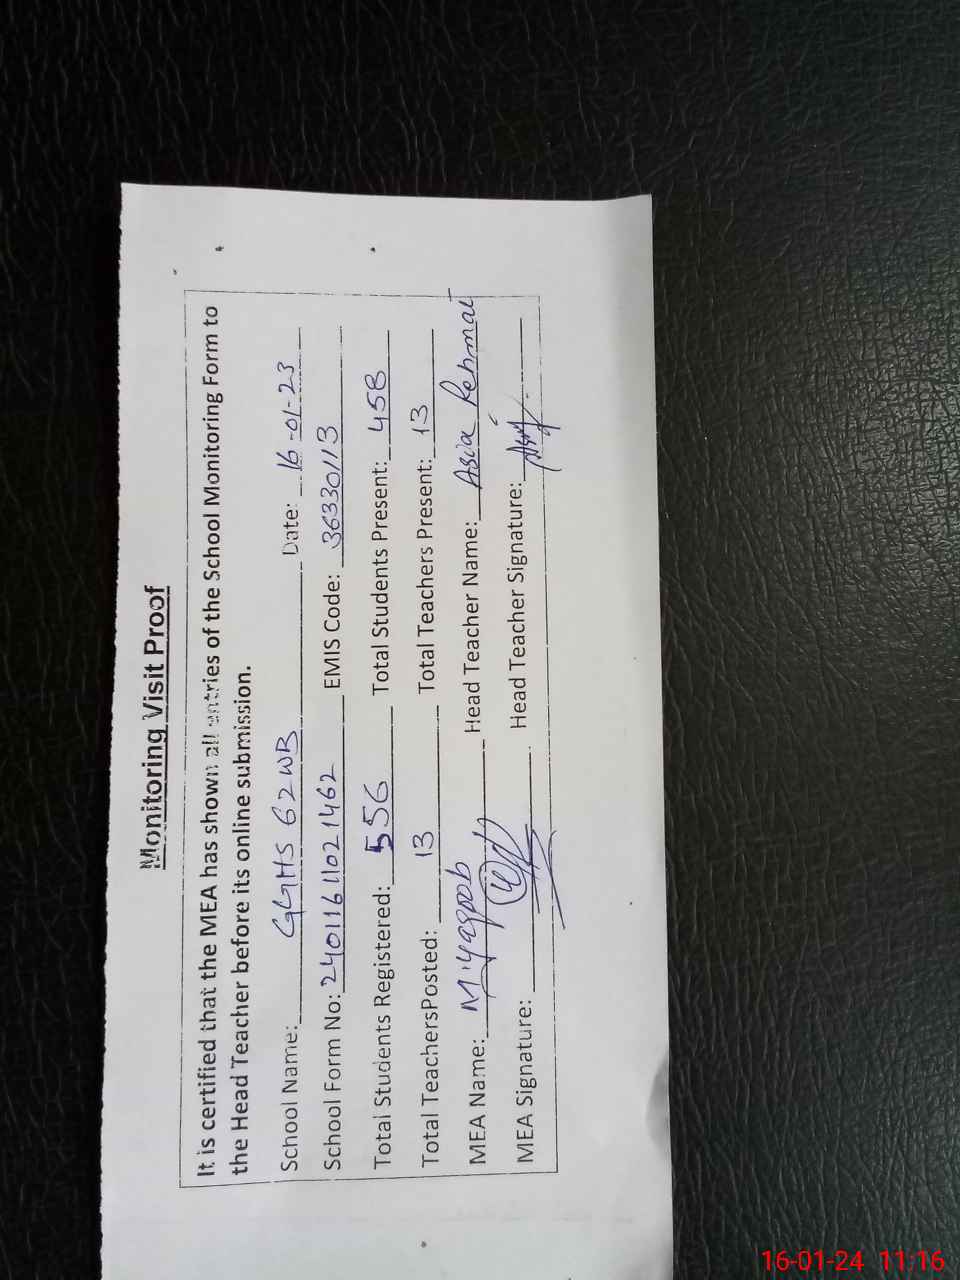 Monitoring Visit Proof
It is certified that the MEA has shown all entries of the School Monitoring Form to
the Head Teacher before its online submission.
School Name: GGHS 62WB Date: 16-01-23
School Form No: 24011611021462 EMIS Code: 36330113
Total Students Registered: 556 Total Students Present: 458
Total TeachersPosted: 13 Total Teachers Present: 13
MEA Name: M.Yaqoob Head Teacher Name: Asia Rehmat
MEA Signature: Head Teacher Signature:
16-01-24 11:16